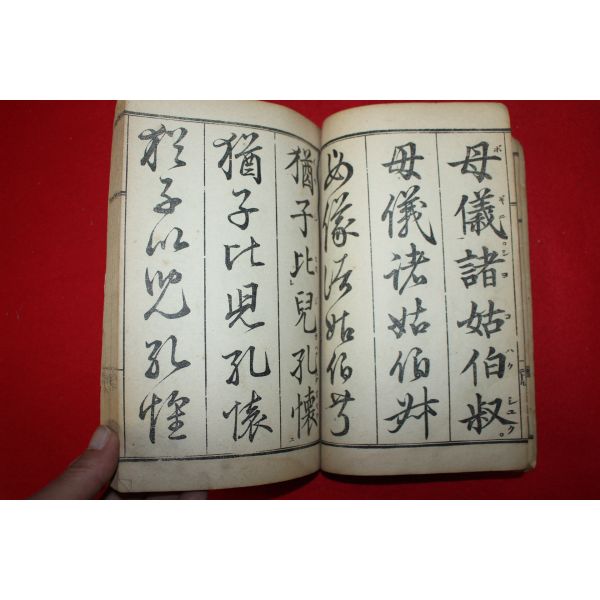 母儀諸姑伯叔
ボ ギ シヨ コ ハク シユク
母儀諸姑伯叔
母儀諸姑伯叔
猶子比兒孔懷
猶子比兒孔懷
猶子比兒孔懷